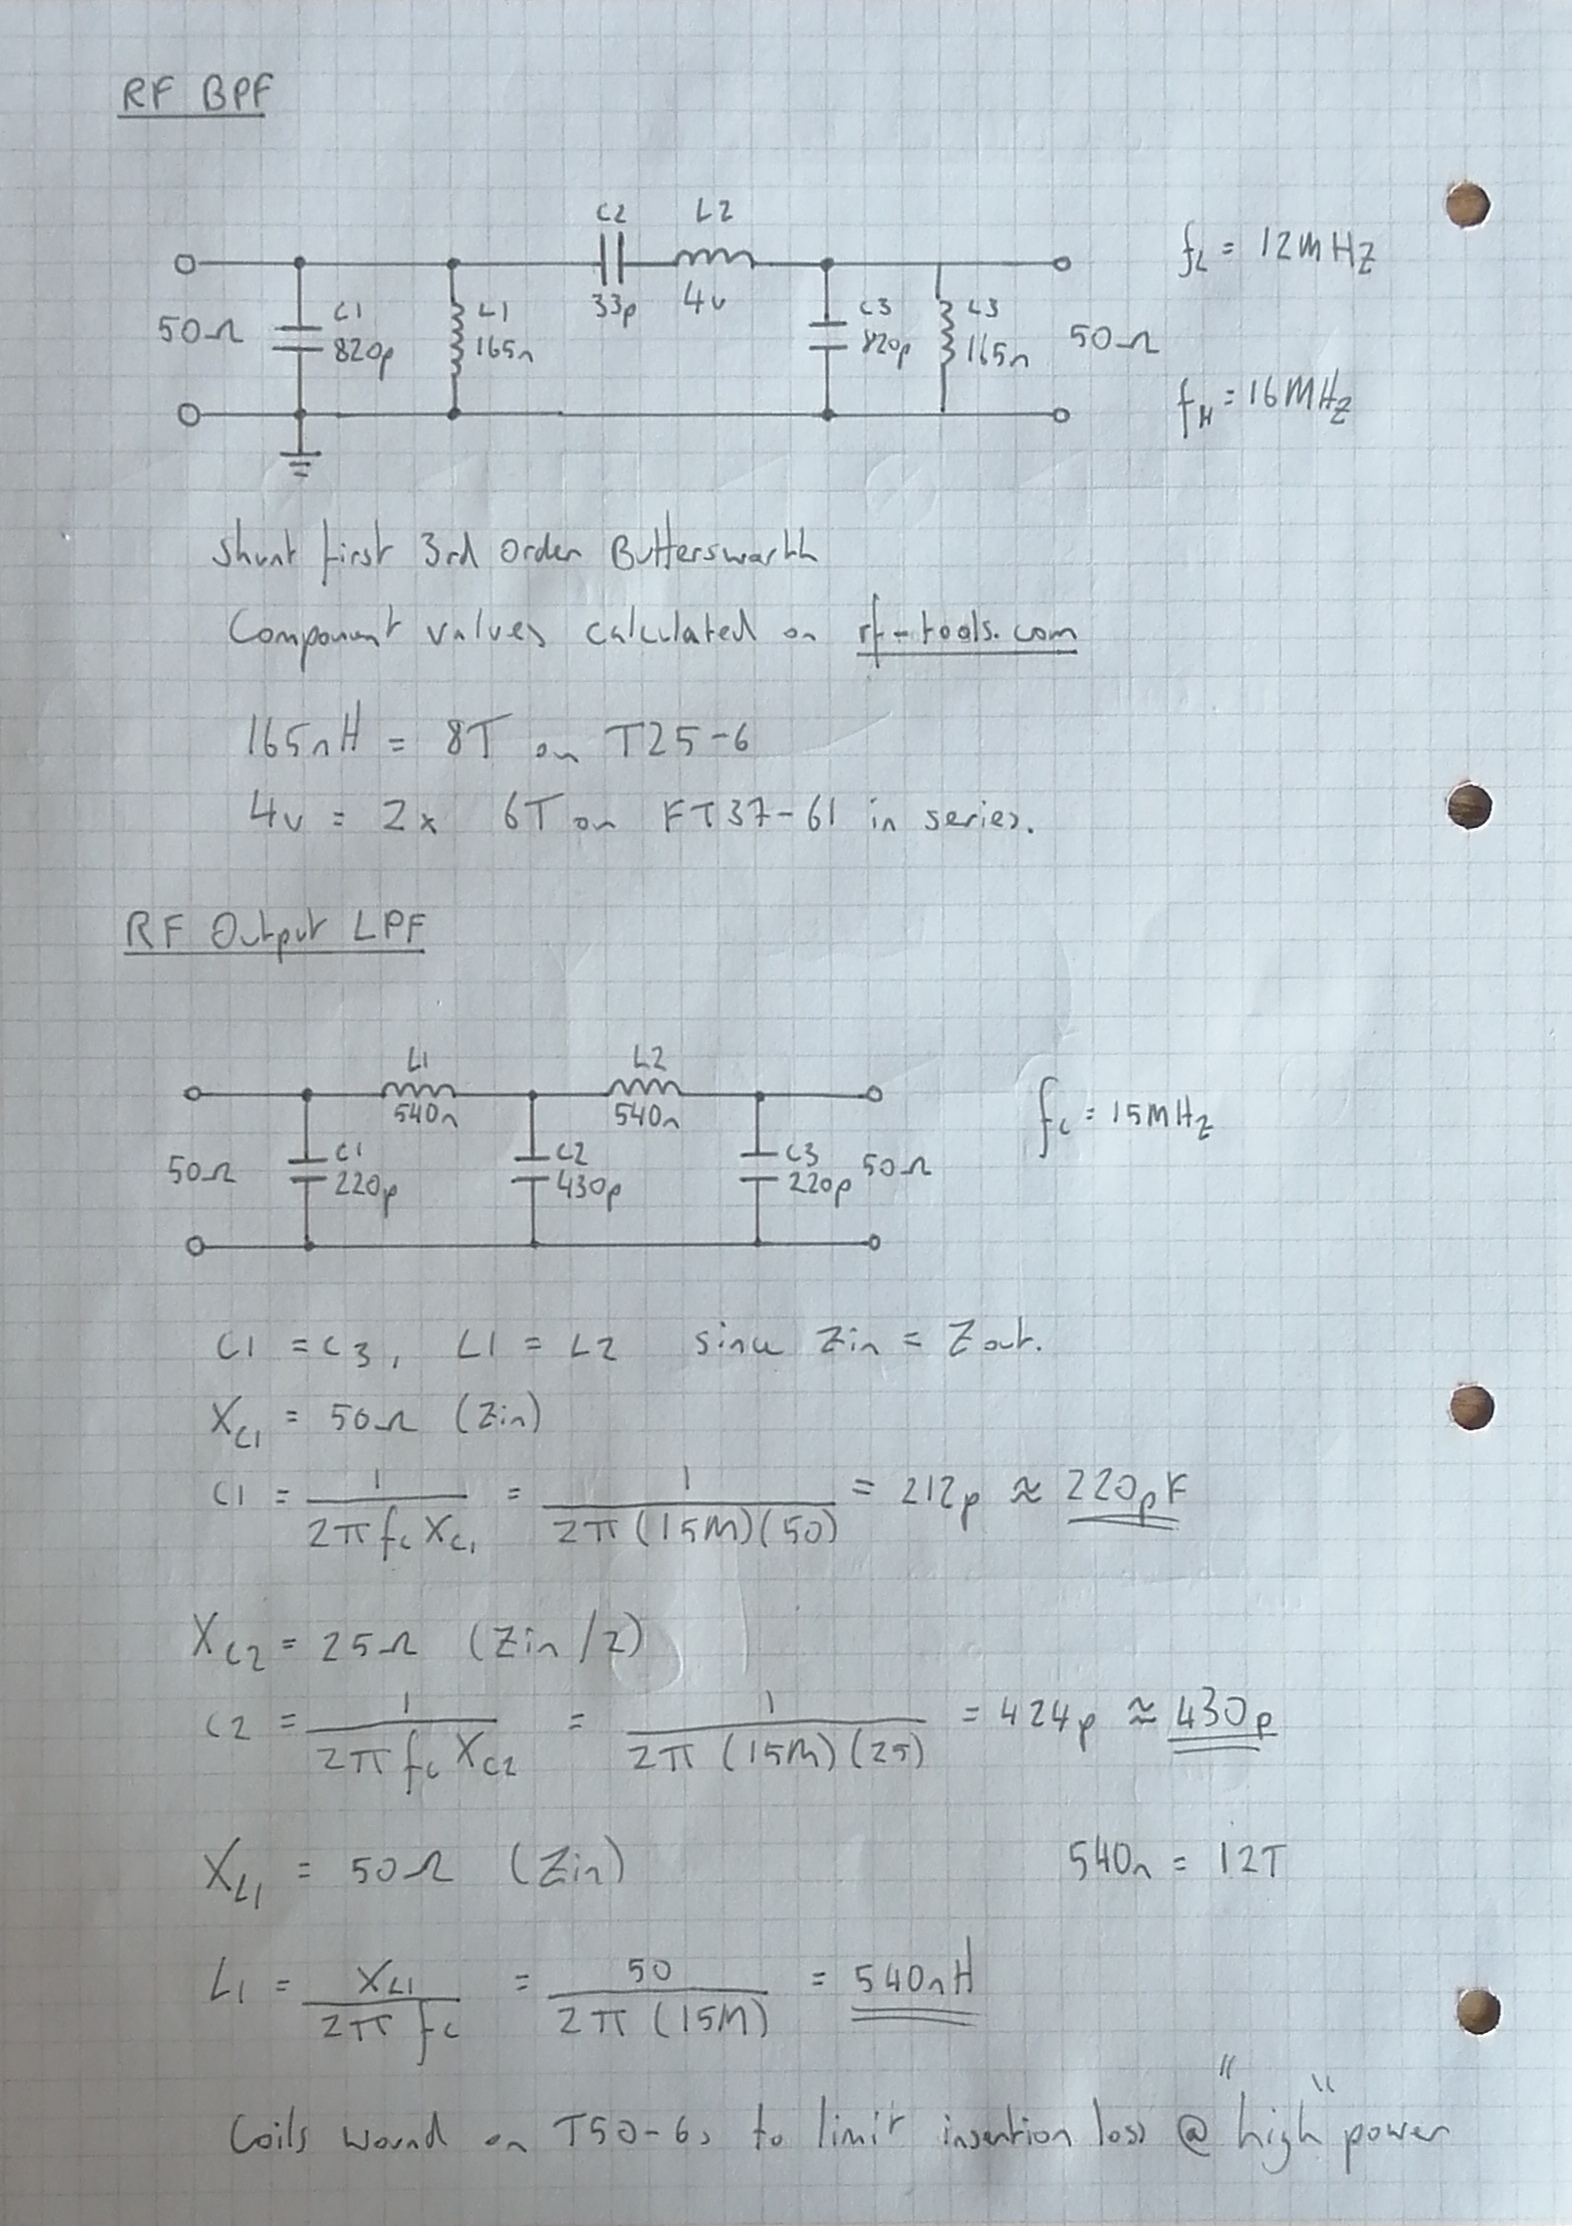 RF BPF
C2 L2
33p 4u
50Ω C1 820p L1 165n C3 820p L3 165n 50Ω
fL = 12MHz
fH = 16MHz
Shunt first 3rd Order Butterswarth
Component values calculated on rf-tools.com
165nH = 8T on T25-6
4u = 2x 6T on FT37-61 in series.
RF Output LPF
L1 L2
540n 540n
50Ω C1 220p C2 430p C3 220p 50Ω
fc = 15MHz
C1 = C3, L1 = L2 since Zin = Zout.
XC1 = 50Ω (Zin)
C1 = 1 / 2π fc XC1 = 1 / 2π (15M)(50) = 212p ≈ 220pF
XC2 = 25Ω (Zin/2)
C2 = 1 / 2π fc XC2 = 1 / 2π (15M)(25) = 424p ≈ 430p
XL1 = 50Ω (Zin) 540n = 12T
L1 = XL1 / 2π fc = 50 / 2π (15M) = 540nH
Coils wound on T50-6, to limit insertion loss @ "high" power